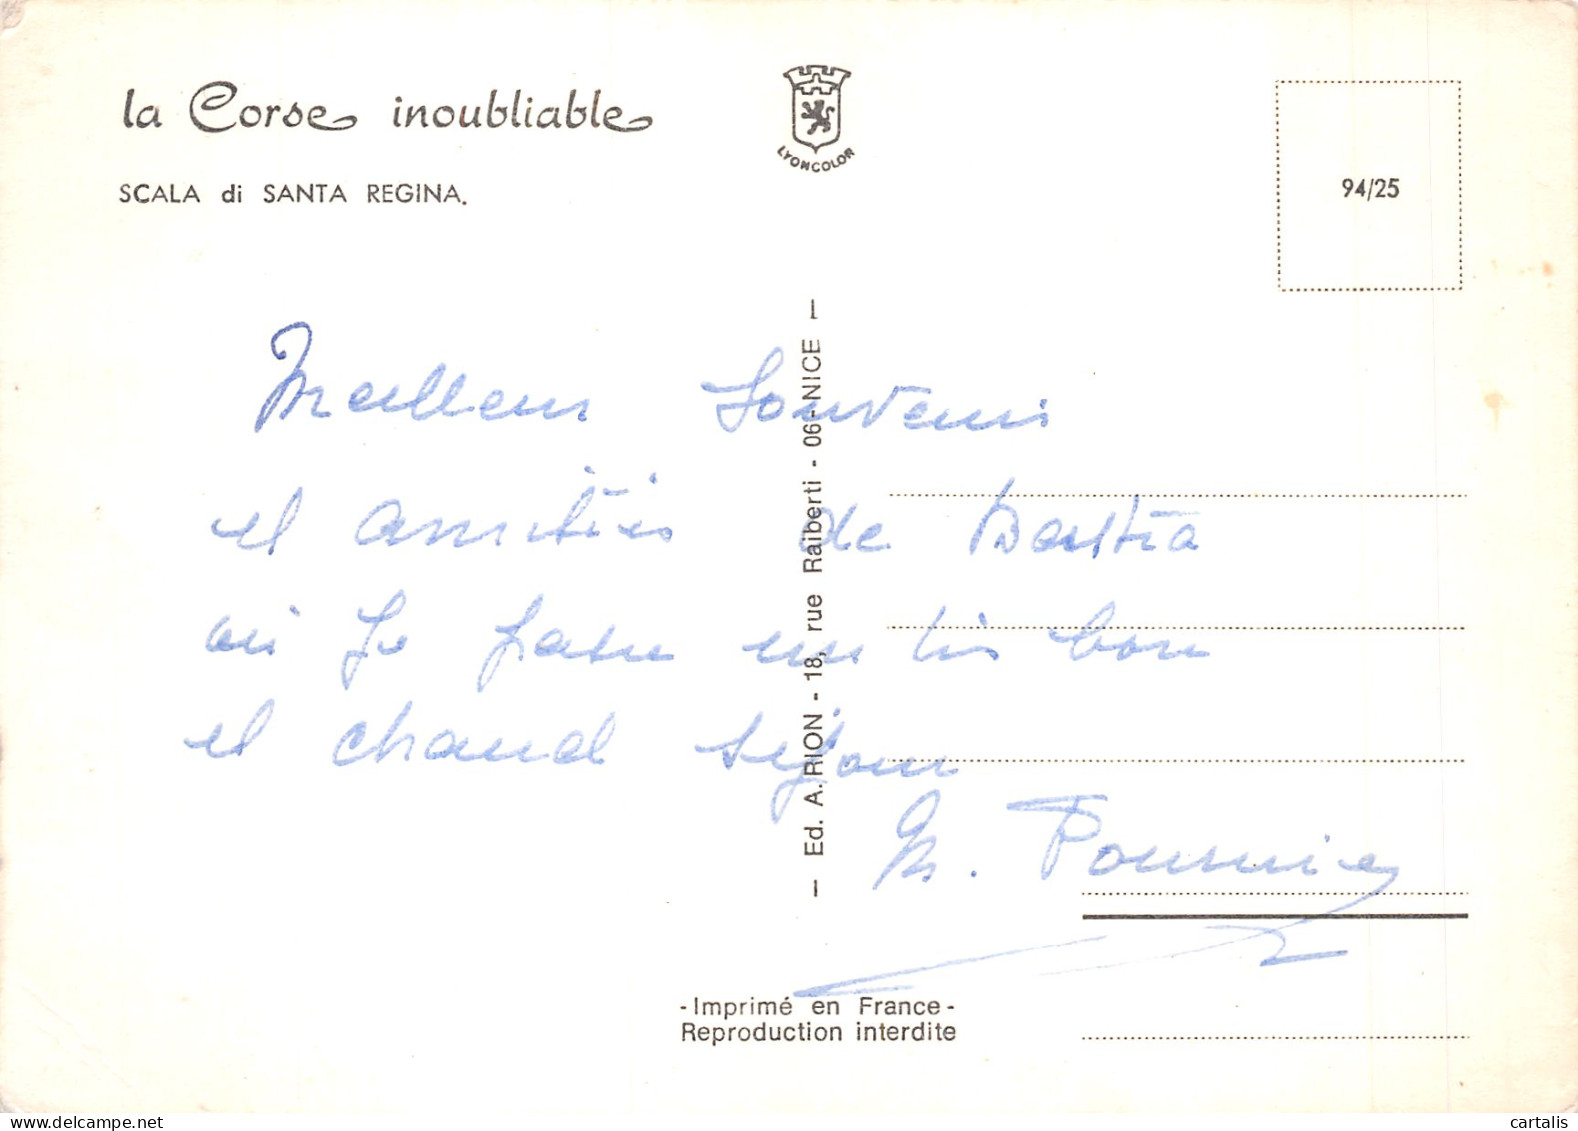 la Corse inoubliable
SCALA di SANTA REGINA.
LYONCOLOR
94/25
Meilleurs Souvenirs
et amitiés de Bastia
où je passe un très bon
et chaud séjour
M. Fournier
— Ed. A. RION - 18, rue Raiberti - 06-NICE —
-Imprimé en France-
Reproduction interdite
cartalis